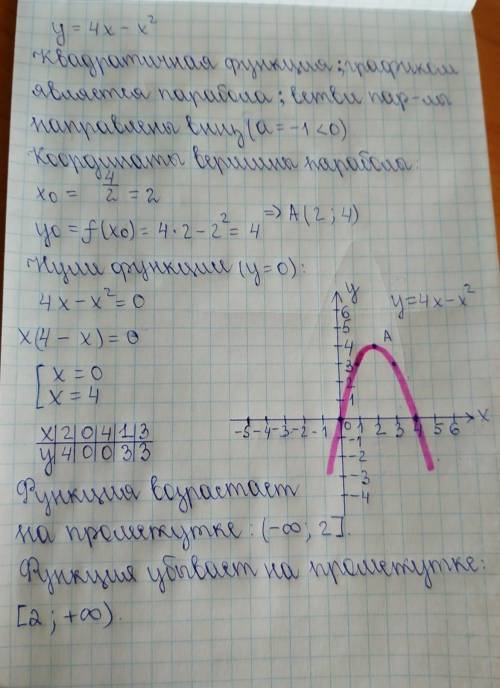 y = 4x - x²
Квадратичная функция; графиком
является парабола; ветви пар-лы
направлены вниз (a = -1 < 0)
Координаты вершины парабола:
x₀ = 4/2 = 2
y₀ = f(x₀) = 4·2 - 2² = 4 => A(2; 4)
Нули функции (y=0):
4x - x² = 0
x(4 - x) = 0
[ x = 0
x = 4
x 2 0 4 1 3
y 4 0 0 3 3
y
y=4x-x²
6
5
4
A
3
2
1
-5 -4 -3 -2 -1 0 1 2 3 4 5 6 x
-1
-2
-3
-4
Функция возрастает
на промежутке: (-∞; 2].
Функция убывает на промежутке:
[2; +∞).